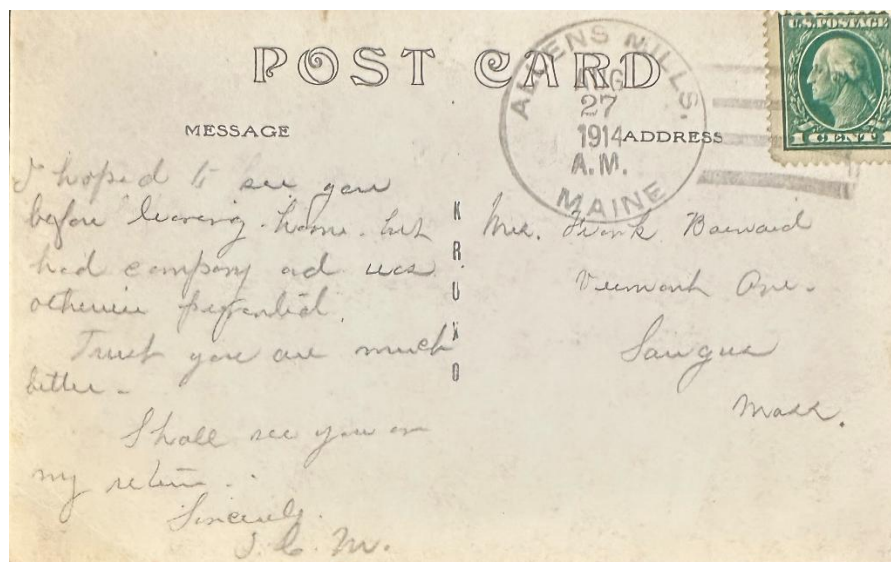 POST CARD
ALLENS MILLS.
AUG
27
1914
A.M.
MAINE
U.S. POSTAGE
1 CENT 1
MESSAGE
I hoped to see you
before leaving home. but
had company ad was
otherwise prevented.
Trust you are much
better.
Shall see you on
my return.
Sincerely.
KRUXO
ADDRESS
Mrs. Frank Barnard
Vermont Ave.
Saugus
Mass.